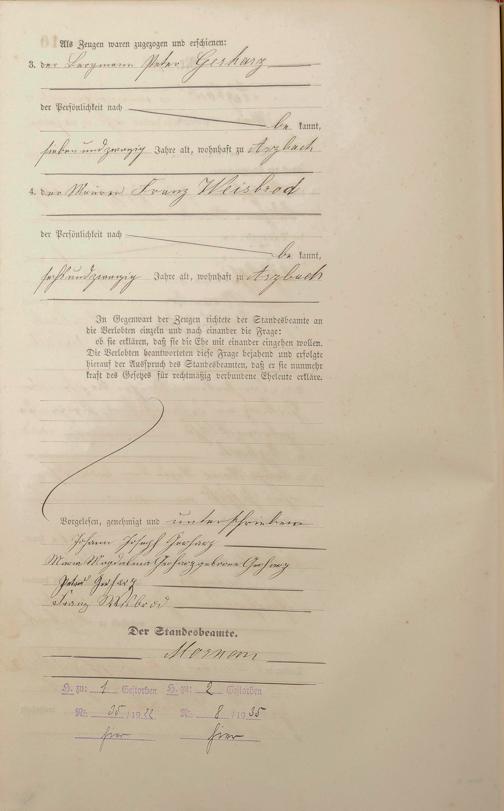 Als Zeugen waren zugezogen und erschienen:
3. der Bergmann Peter Gerharz
der Persönlichkeit nach
be kannt,
siebenundzwanzig Jahre alt, wohnhaft zu Arzbach
4. der Maurer Franz Weisbrod
der Persönlichkeit nach
be kannt,
sechsundzwanzig Jahre alt, wohnhaft zu Arzbach
In Gegenwart der Zeugen richtete der Standesbeamte an
die Verlobten einzeln und nach einander die Frage:
ob sie erklären, daß sie die Ehe mit einander eingehen wollen.
Die Verlobten beantworteten diese Frage bejahend und erfolgte
hierauf der Ausspruch des Standesbeamten, daß er sie nunmehr
kraft des Gesetzes für rechtmäßig verbundene Eheleute erkläre.
Vorgelesen, genehmigt und unterschrieben
Johann Joseph Gerharz
Maria Magdalena Gerharz geborene Gerharz
Peter Gerharz
Franz Weisbrod
Der Standesbeamte.
H. zu: 1 Gestorben H. zu: 2 Gestorben
Nr. 35 / 1922 Nr. 8 / 1935
hier hier